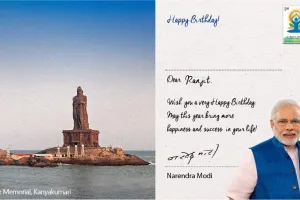 Memorial, Kanyakumari
Happy Birthday!
Dear Ranjit,
Wish you a very Happy Birthday.
May this year bring more
happiness and success in your life!
Narendra Modi